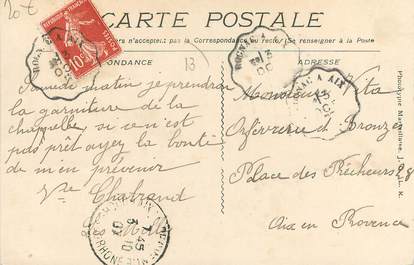 20€
CARTE POSTALE
ers n'acceptent pas la Correspondance au recto (Se renseigner à la Poste
ONDANCE
ADRESSE
13
Samedi matin je prendrai
la garniture de la
chapelle si ce n'est
pas prêt ayez la bonté
de m'en prévenir
Vve Chabrand
Monsieur Vita
Orfèvrerie et Bronze
Place des Prêcheurs 28
Aix en Provence
ROGNAC A AIX
ROGNAC A AIX
POSTES
10
Phototypie Marseillaise, J. L. R.
7 45
3 10
07